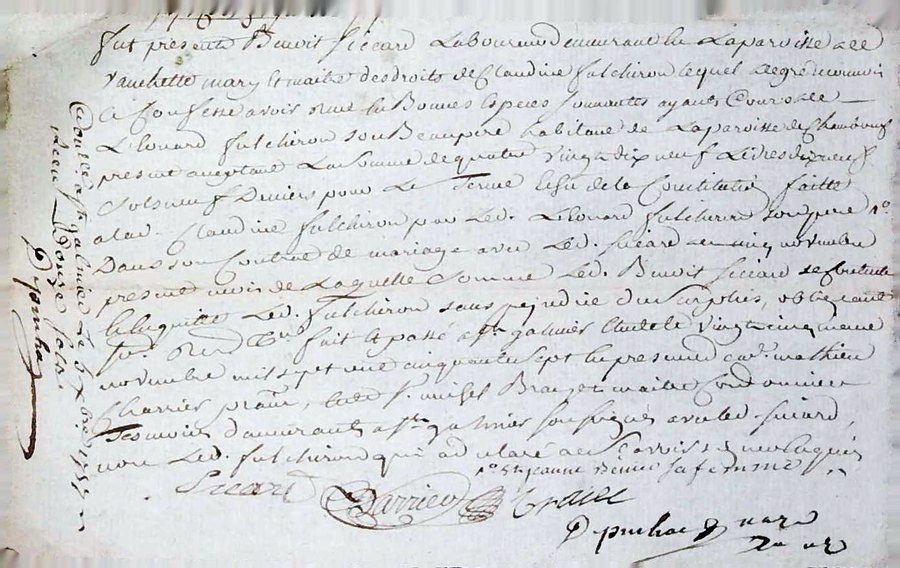 fut present Benoit Siccard Laboureur demeurant en La parroisse de
vauchette mary et maitre des droits de Claudine fulchiron lequel de gré reconnoit
et Confesse avoir reçu en Bonnes Especes sonnantes ayants Cours de
Léonard fulchiron son Beaupere habitant de La paroisse de Chambœuf
present acceptant La somme de quatre vingt dix neuf Livres dix neuf
sols neuf Deniers pour Le Terme Echu de la Constitution faitte
a lad. Claudine fulchiron par Led. Léonard fulchiron son pere 1°
Dans son Contrat de mariage avec Led. Siccard le cinq novembre
present mois de Laquelle somme Led. Benoit Siccard se Contente
et en quitte Led. fulchiron sans prejudice du surplus, obligeant
fait et passé a st galmier Etude le vingt cinquieme
novembre mil sept cent cinquante sept En presence de mathieu
Charrier praticien, et de s. michel Brac, et maitre Cordonnier
Tesmoins demeurants a st galmier soussignés avec led. Siccard
non Led. fulchiron qui a declaré ne sçavoir de ce enquis
1° et jeanne sa femme
Sicard Charrier Brac
Depinhac
Controllé a st galmier Le 6 xbre 1757
Reçu Douze sols
Depinhac